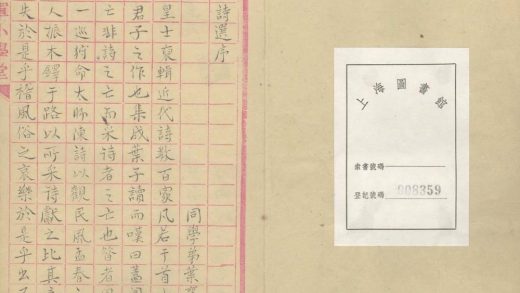 詩選序
同學弟葉
皇士裒輯近代詩數百家凡若干首
君子之作也集成葉子讀而嘆曰蓋
亡非詩之亡而采诗者之亡也昔者
一巡狩命大師陳詩以觀民風孟春之
人振木鐸于路以所采诗獻之比其
失於是乎稽風俗之哀樂於是乎出
小學堂
上海圖書館
索書號碼
登記號碼 008359